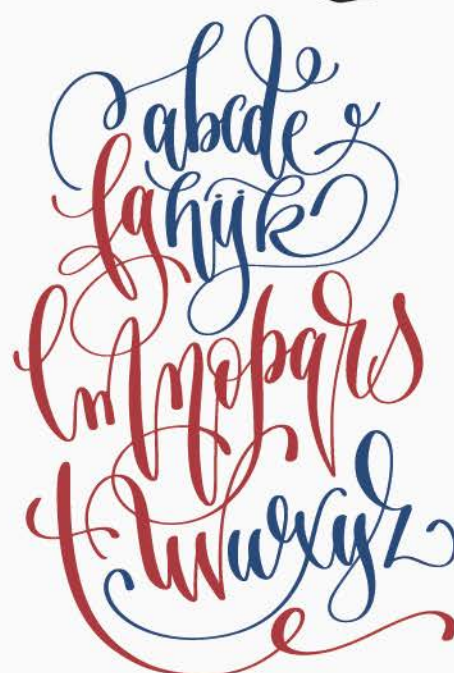 abcde
fghijk
lmnopqrs
tuvwxyz